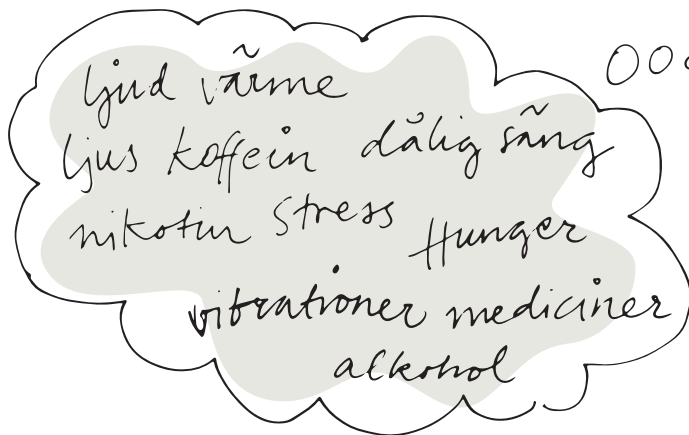 ljud värme
ljus koffein dålig säng
nikotin stress Hunger
vibrationer mediciner
alkohol